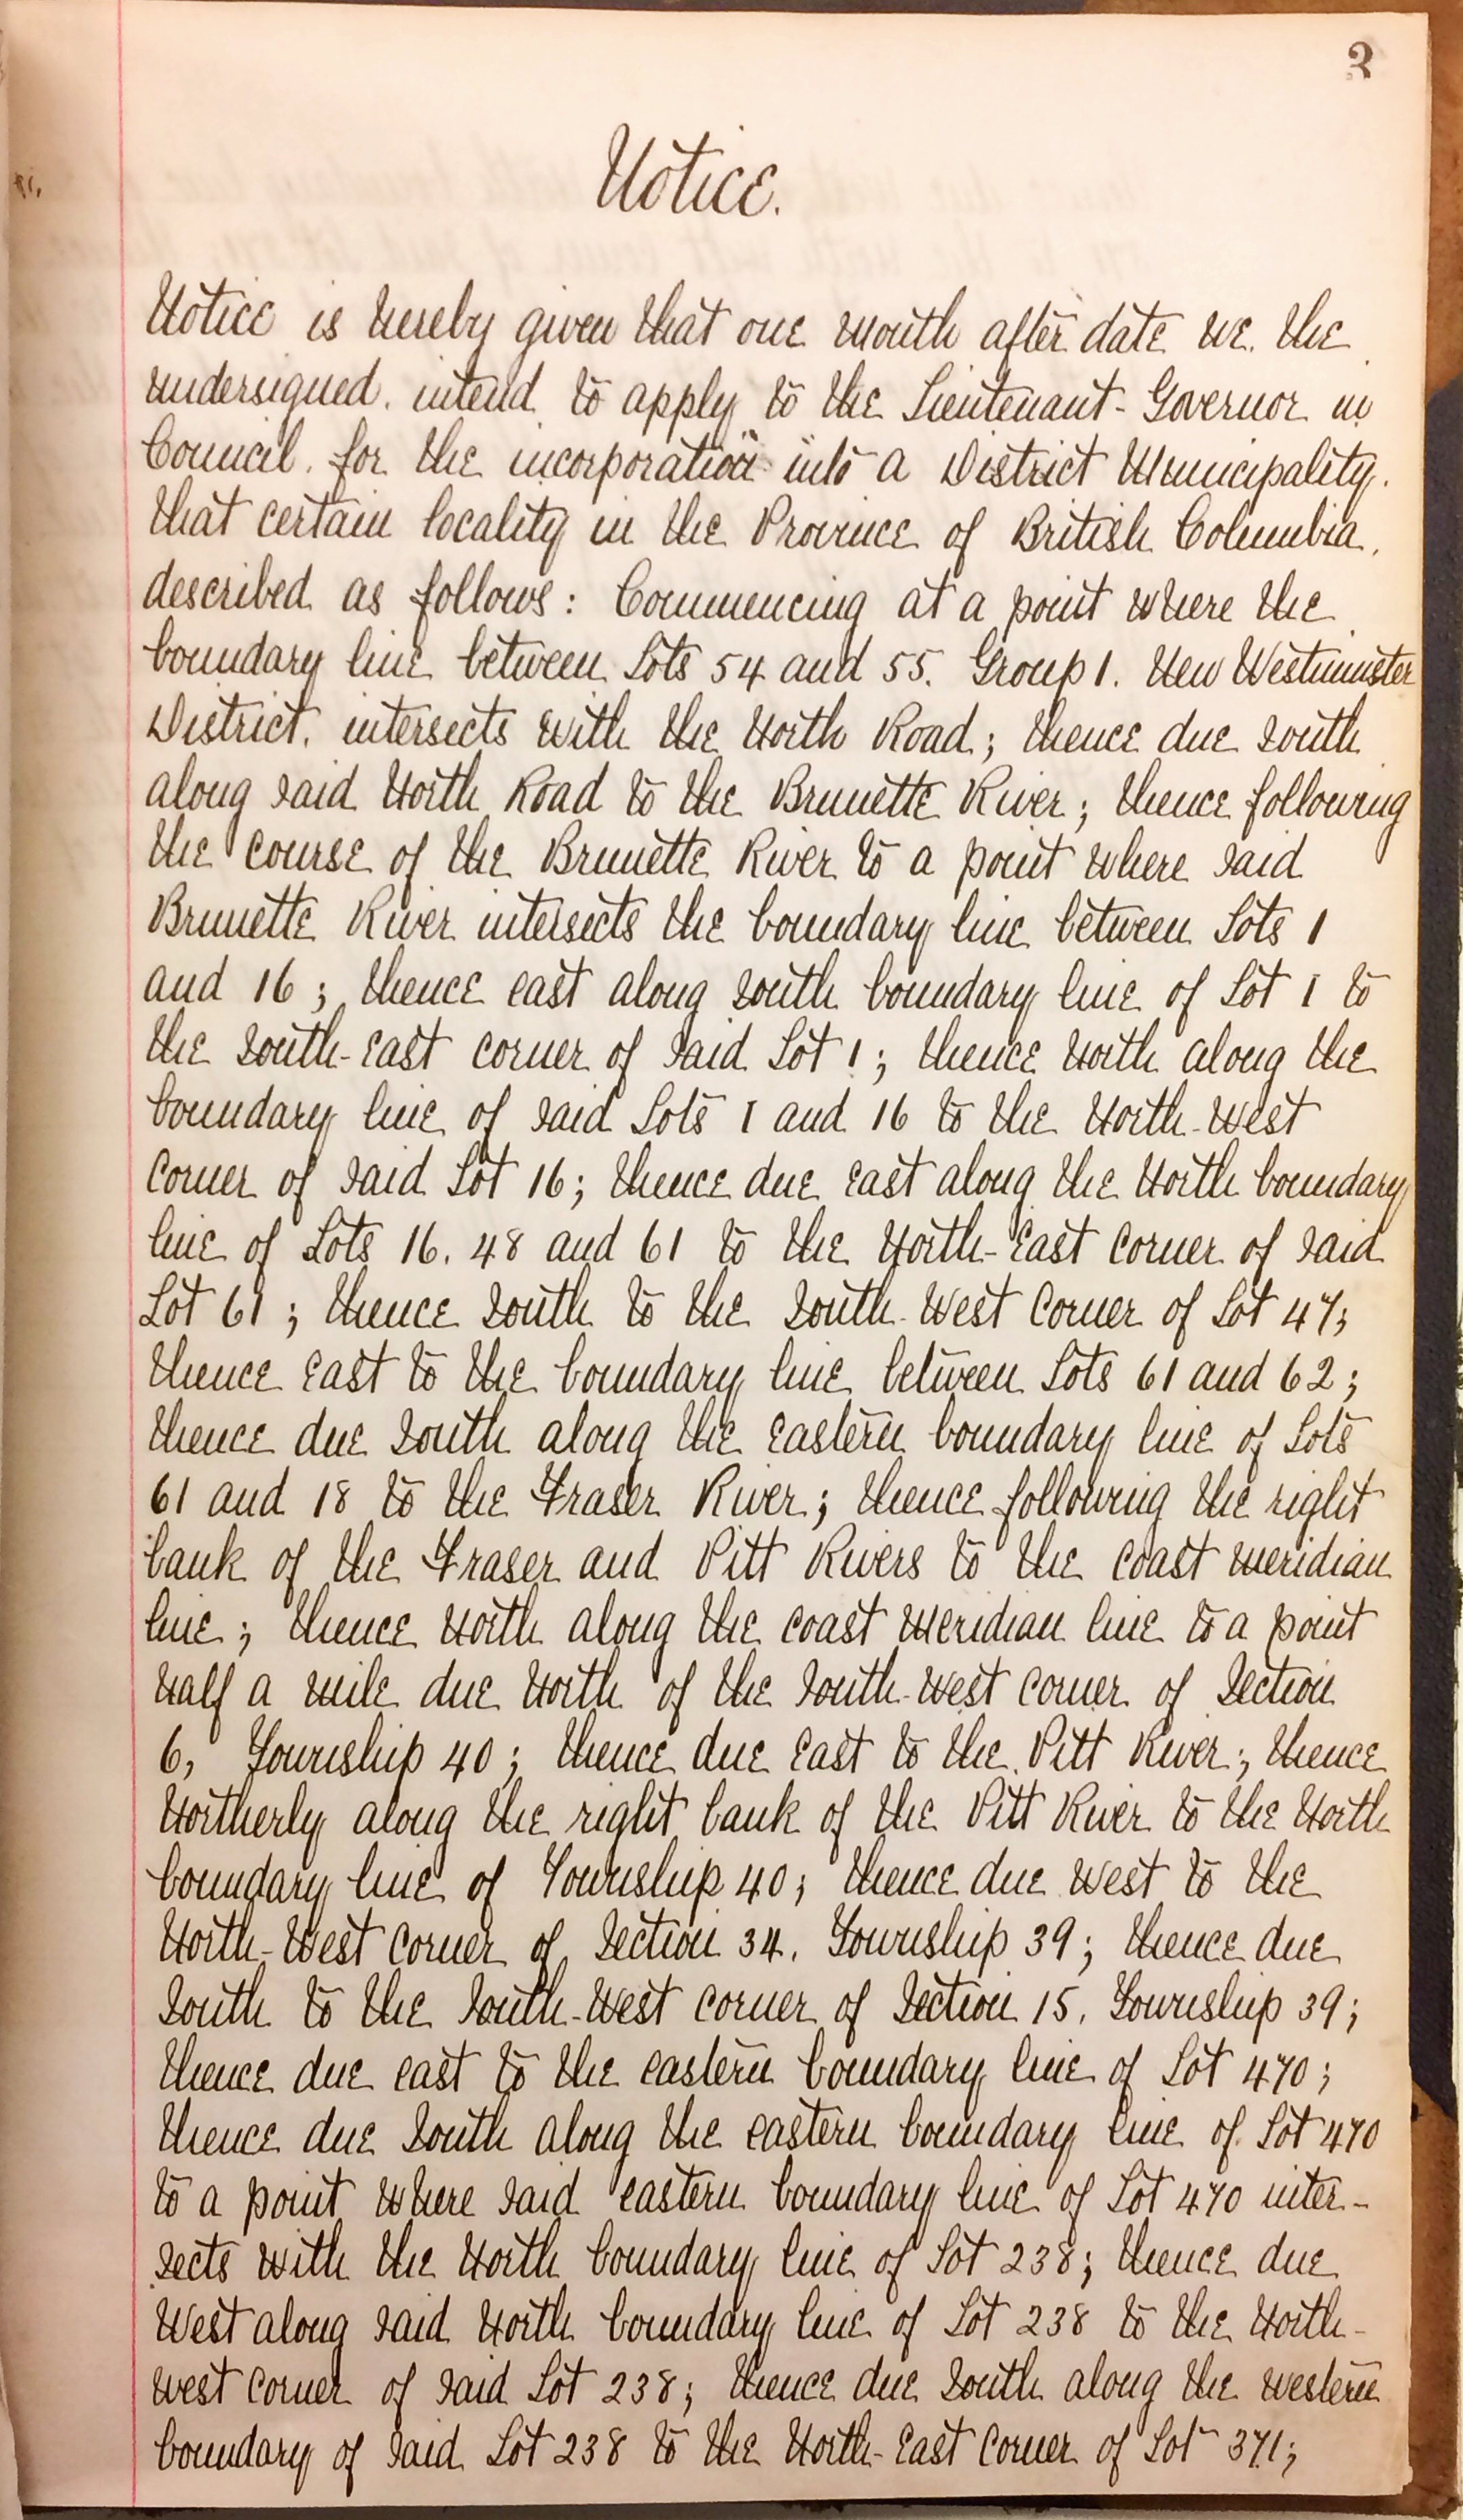 3
Notice.
Notice is hereby given that one month after date we. the
undersigned. intend to apply to the Lieutenant-Governor in
Council. for the incorporation into a District Municipality.
that certain locality in the Province of British Columbia,
described as follows: Commencing at a point where the
boundary line between Lots 54 and 55. Group 1. New Westminster
District. intersects with the North Road; thence due south
along said North Road to the Brunette River; thence following
the course of the Brunette River to a point where said
Brunette River intersects the boundary line between Lots 1
and 16; thence east along south boundary line of Lot 1 to
the South-East corner of said Lot 1; thence North along the
boundary line of said Lots 1 and 16 to the North-West
Corner of said Lot 16; thence due East along the North boundary
line of Lots 16. 48 and 61 to the North-East Corner of said
Lot 61; thence South to the South-West Corner of Lot 47;
thence East to the boundary line between Lots 61 and 62;
thence due South along the Eastern boundary line of Lots
61 and 18 to the Fraser River; thence following the right
bank of the Fraser and Pitt Rivers to the coast meridian
line; thence North along the coast Meridian line to a point
half a mile due North of the South-West Corner of Section
6, Township 40; thence due East to the Pitt River; thence
Northerly along the right bank of the Pitt River to the North
boundary line of Township 40; thence due West to the
North-West Corner of Section 34. Township 39; thence due
South to the South-West Corner of Section 15. Township 39;
thence due east to the eastern boundary line of Lot 470;
thence due South along the eastern boundary line of Lot 470
to a point where said eastern boundary line of Lot 470 inter-
sects with the North boundary line of Lot 238; thence due
West along said North boundary line of Lot 238 to the North-
west Corner of said Lot 238; thence due South along the Western
boundary of said Lot 238 to the North-East Corner of Lot 371;